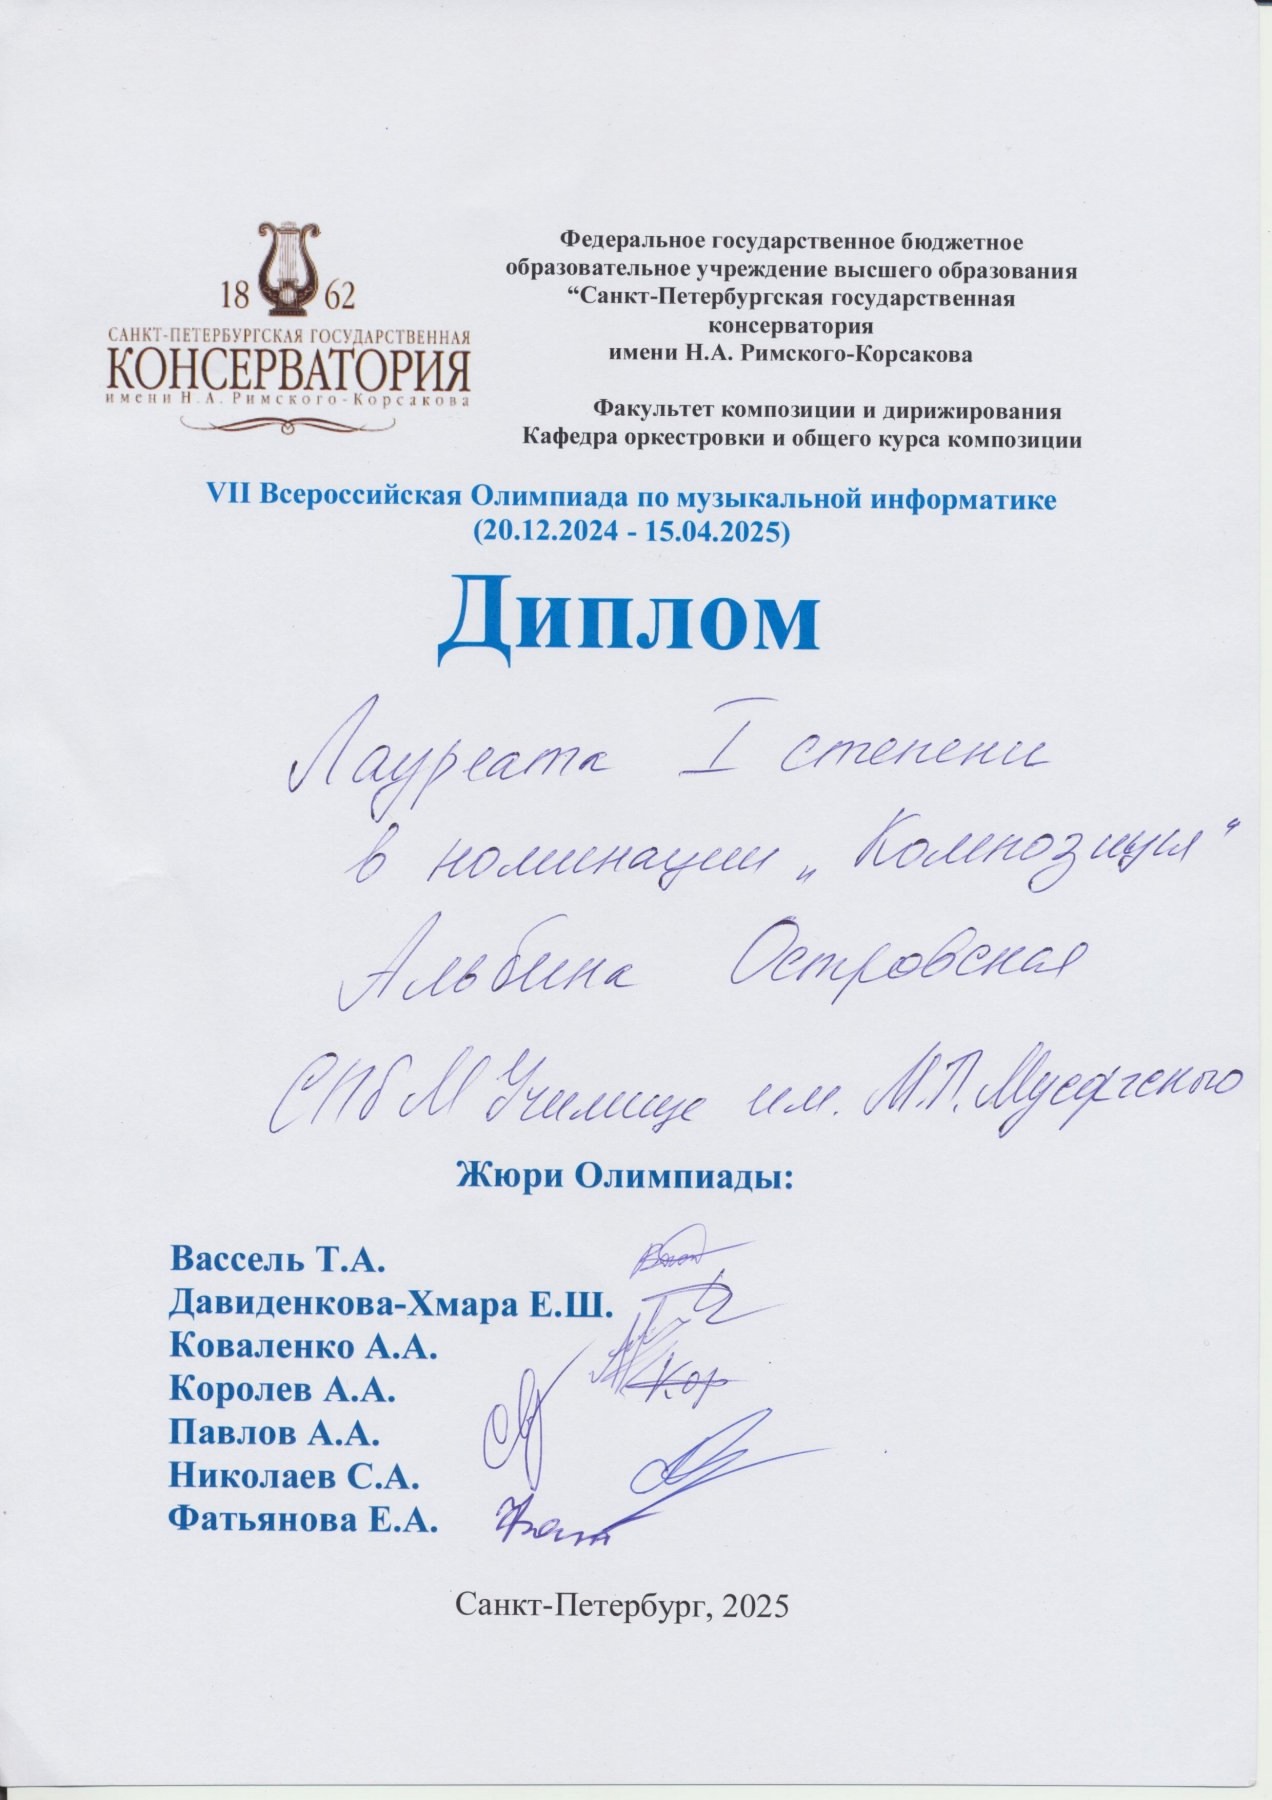 1862
САНКТ-ПЕТЕРБУРГСКАЯ ГОСУДАРСТВЕННАЯ
КОНСЕРВАТОРИЯ
имени Н.А. Римского-Корсакова
Федеральное государственное бюджетное
образовательное учреждение высшего образования
“Санкт-Петербургская государственная
консерватория
имени Н.А. Римского-Корсакова
Факультет композиции и дирижирования
Кафедра оркестровки и общего курса композиции
VII Всероссийская Олимпиада по музыкальной информатике
(20.12.2024 - 15.04.2025)
Диплом
Лауреата I степени
в номинации „Композиция“
Альбина Островская
СПб М Училище им. М.П. Мусоргского
Жюри Олимпиады:
Вассель Т.А.
Давиденкова-Хмара Е.Ш.
Коваленко А.А.
Королев А.А.
Павлов А.А.
Николаев С.А.
Фатьянова Е.А.
Санкт-Петербург, 2025